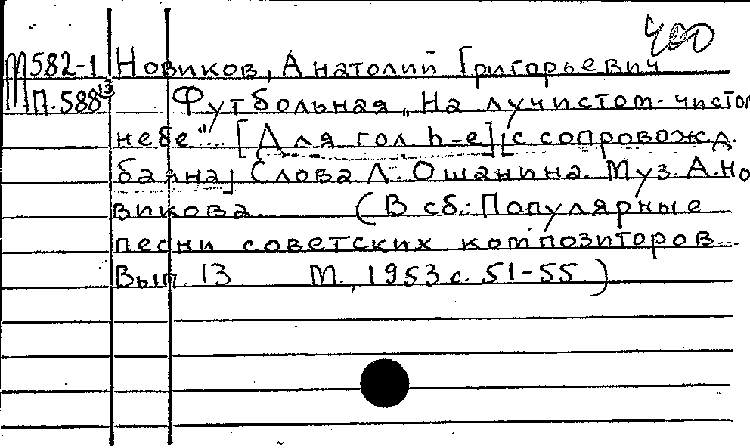 400
М582-1 Новиков, Анатолий Григорьевич
П.588 13 Футбольная „На лучистом-чистом
небе" [Для гол h-e] [с сопровожд.
баяна] Слова Л. Ошанина. Муз. А.Но
викова. (В сб.: Популярные
песни советских композиторов
Вып. 13 М., 1953 с. 51-55)